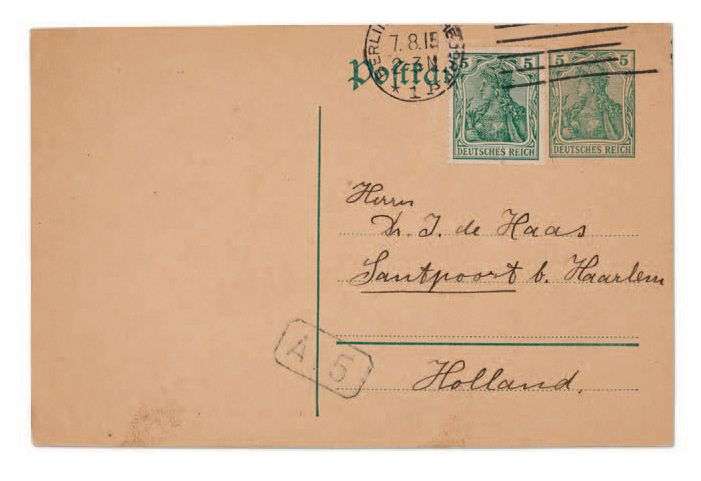 BERLIN
7.8.15
2-3 N
* 1 P
Postka
5 5
DEUTSCHES REICH
5 5
DEUTSCHES REICH
Herrn
Dr. J. de Haas
Santpoort b. Haarlem
Holland.
A. 5